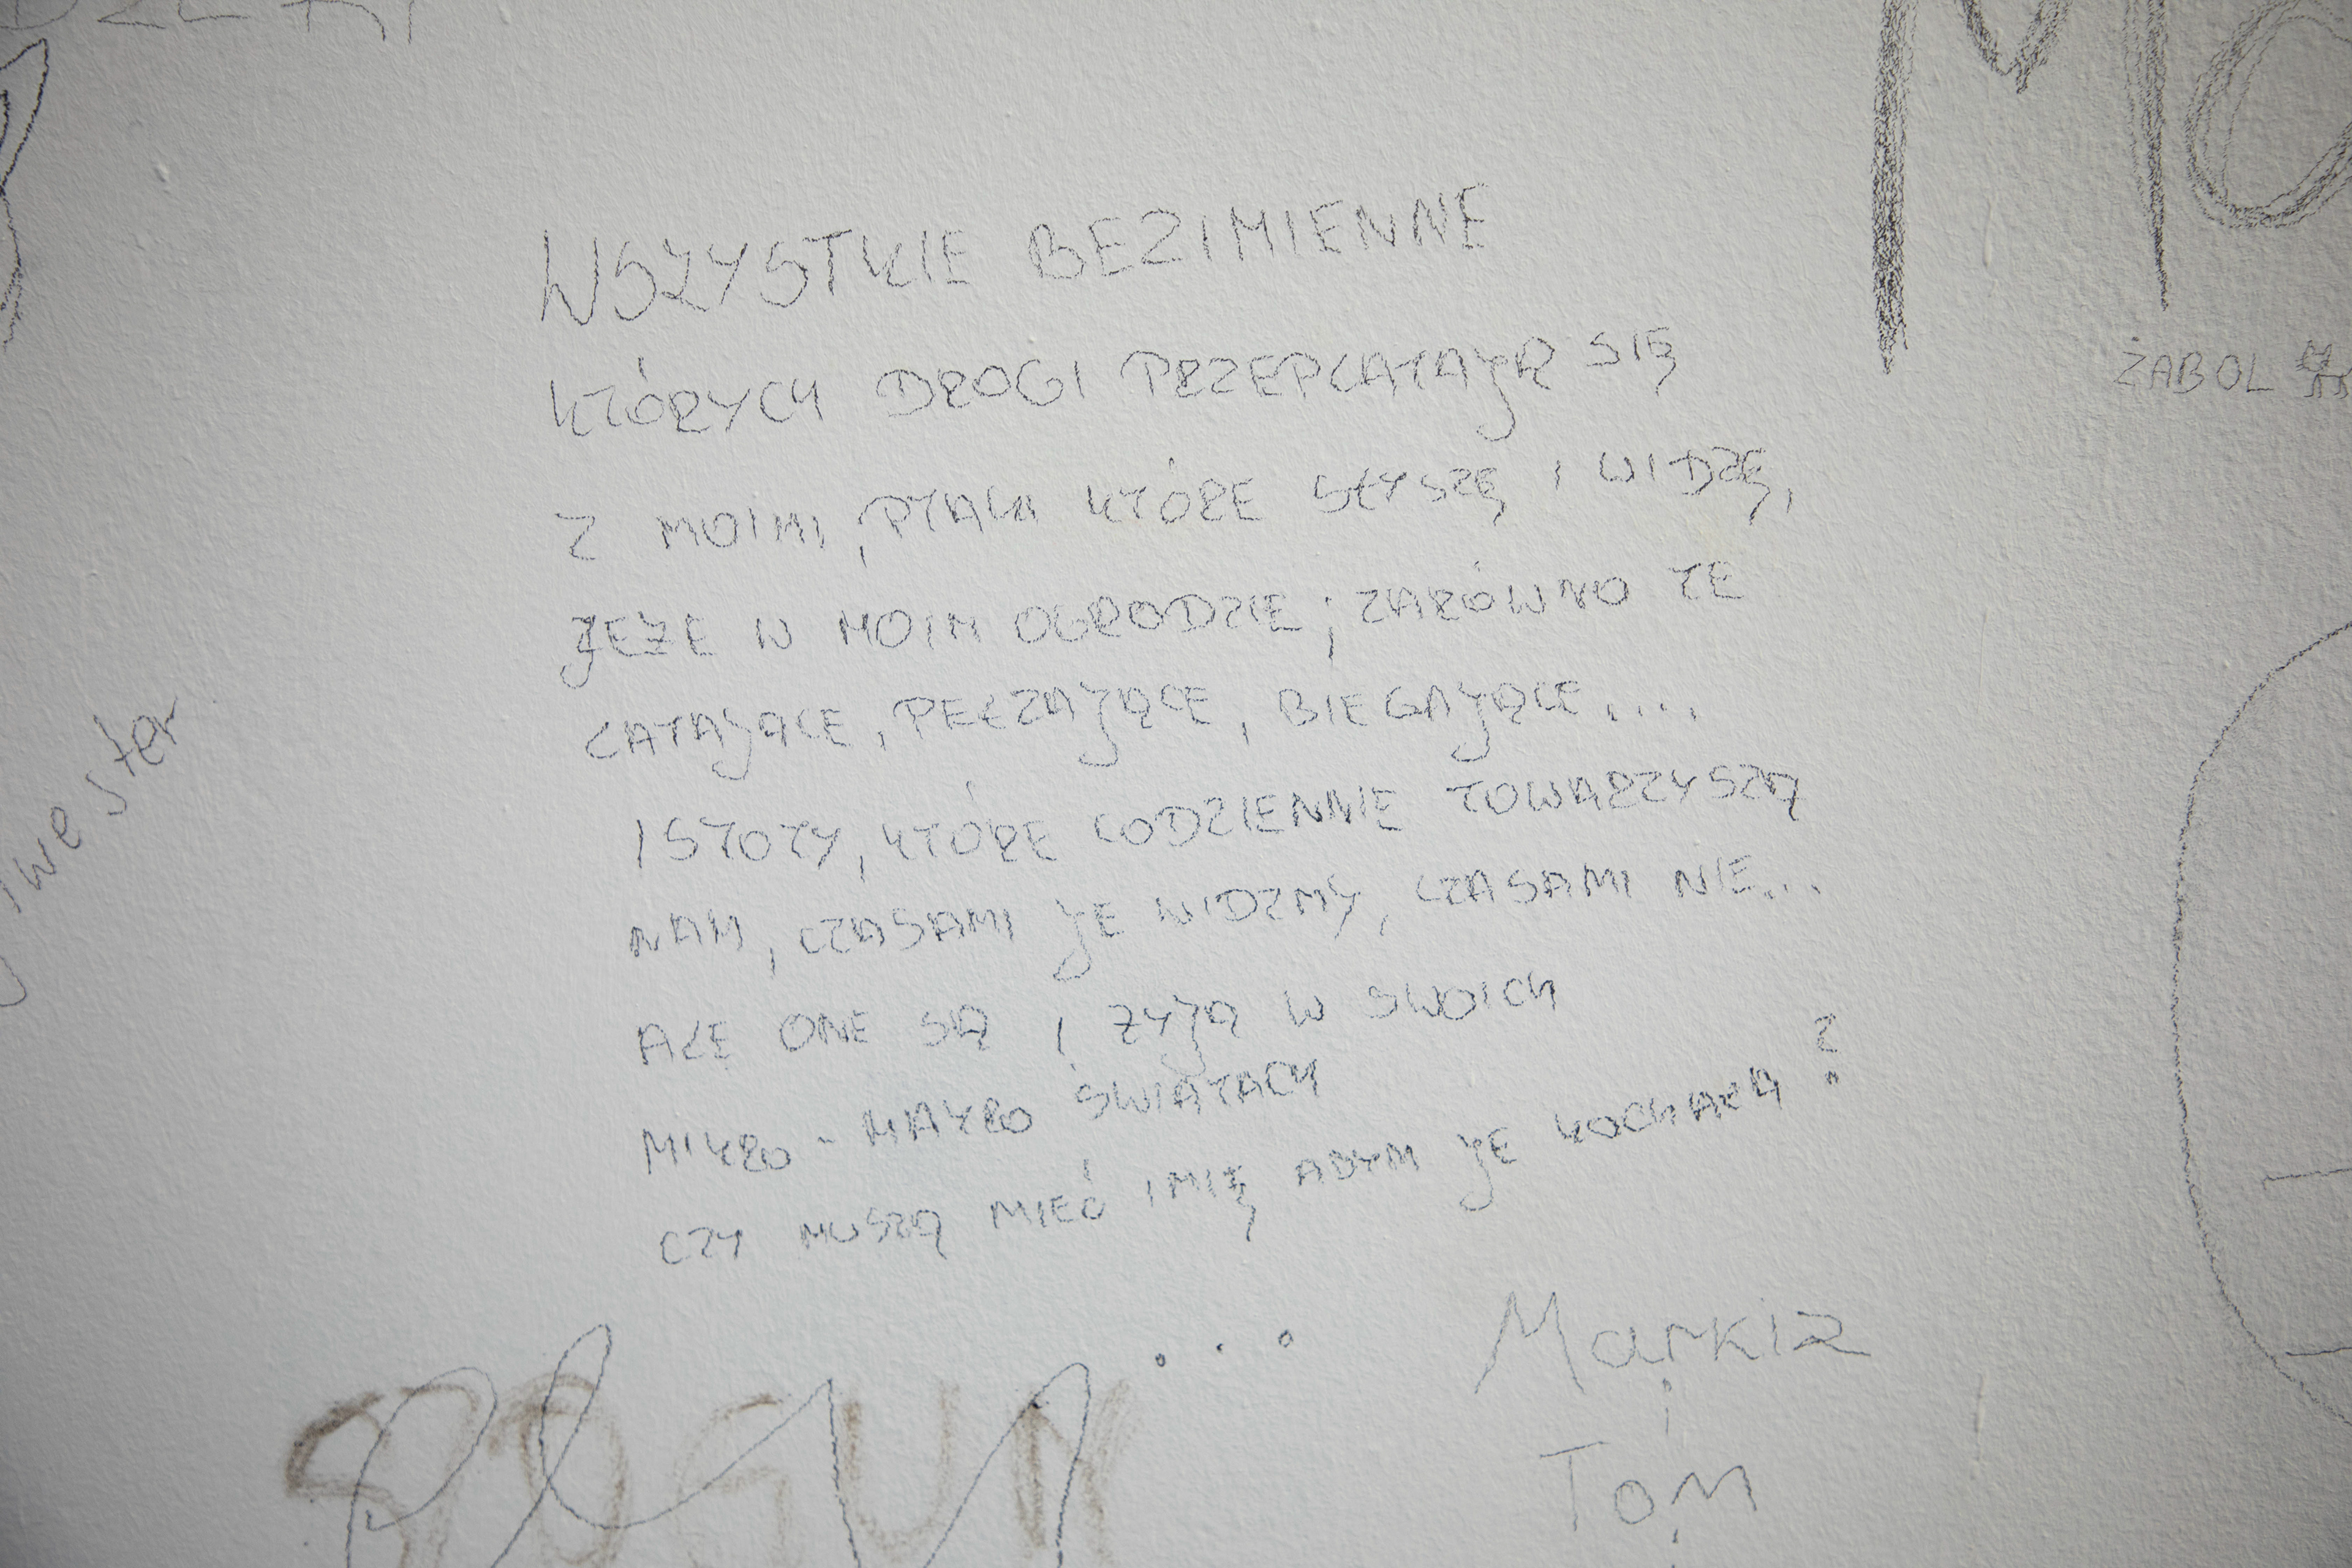 WSZYSTKIE BEZIMIENNE
KTÓRYCH DROGI PRZEPLATAJĄ SIĘ
Z MOIMI, PTAKI KTÓRE SŁYSZĘ I WIDZĘ,
JEŻE W MOIM OGRODZIE; ZARÓWNO TE
LATAJĄCE, PEŁZAJĄCE, BIEGAJĄCE....
ISTOTY, KTÓRE CODZIENNIE TOWARZYSZĄ
NAM, CZASAMI JE WIDZMY, CZASAMI NIE...
ALE ONE SĄ I ŻYJĄ W SWOICH
MIKRO - MAKRO ŚWIATACH
CZY MUSZĄ MIEĆ IMIĘ ABYM JE KOCHAŁA ?
...
Markiz
i
Tom
ŻABOL
wester